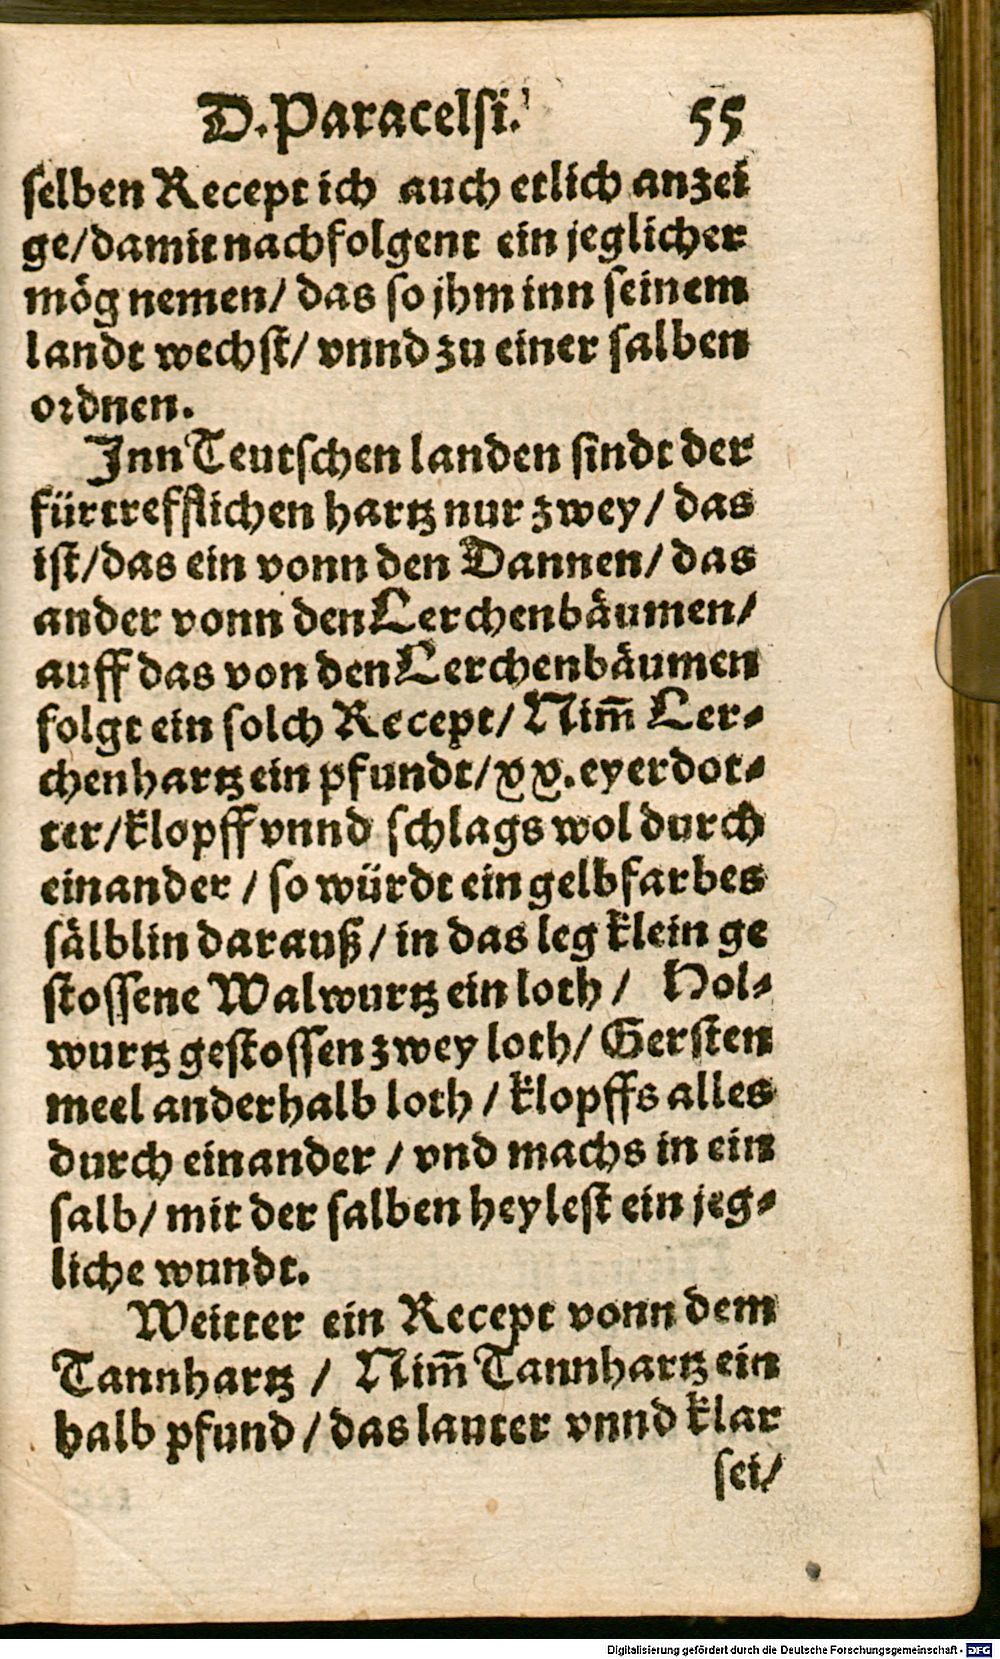 D. Paracelsi. 55
selben Recept ich auch etlich anzei
ge/damit nachfolgent ein jeglicher
mög nemen/ das so jhm inn seinem
landt wechst/ vnnd zu einer salben
ordnen.
Inn Teutschen landen sindt der
fürtrefflichen hartz nur zwey/ das
ist/das ein vonn den Dannen/ das
ander vonn den Lerchenbäumen/
auff das von den Lerchenbäumen
folgt ein solch Recept/ Nim̃ Ler⸗
chenhartz ein pfundt/xx. eyerdot⸗
ter/klopff vnnd schlags wol durch
einander / so würdt ein gelbfarbes
sälblin darauß/ in das leg klein ge
stossene Walwurtz ein loth / Hol⸗
wurtz gestossen zwey loth/ Gersten
meel anderhalb loth / klopffs alles
durch einander / vnd machs in ein
salb/ mit der salben heylest ein jeg⸗
liche wundt.
Weitter ein Recept vonn dem
Tannhartz / Nim̃ Tannhartz ein
halb pfund / das lauter vnnd klar
sei/
Digitalisierung gefördert durch die Deutsche Forschungsgemeinschaft - DFG